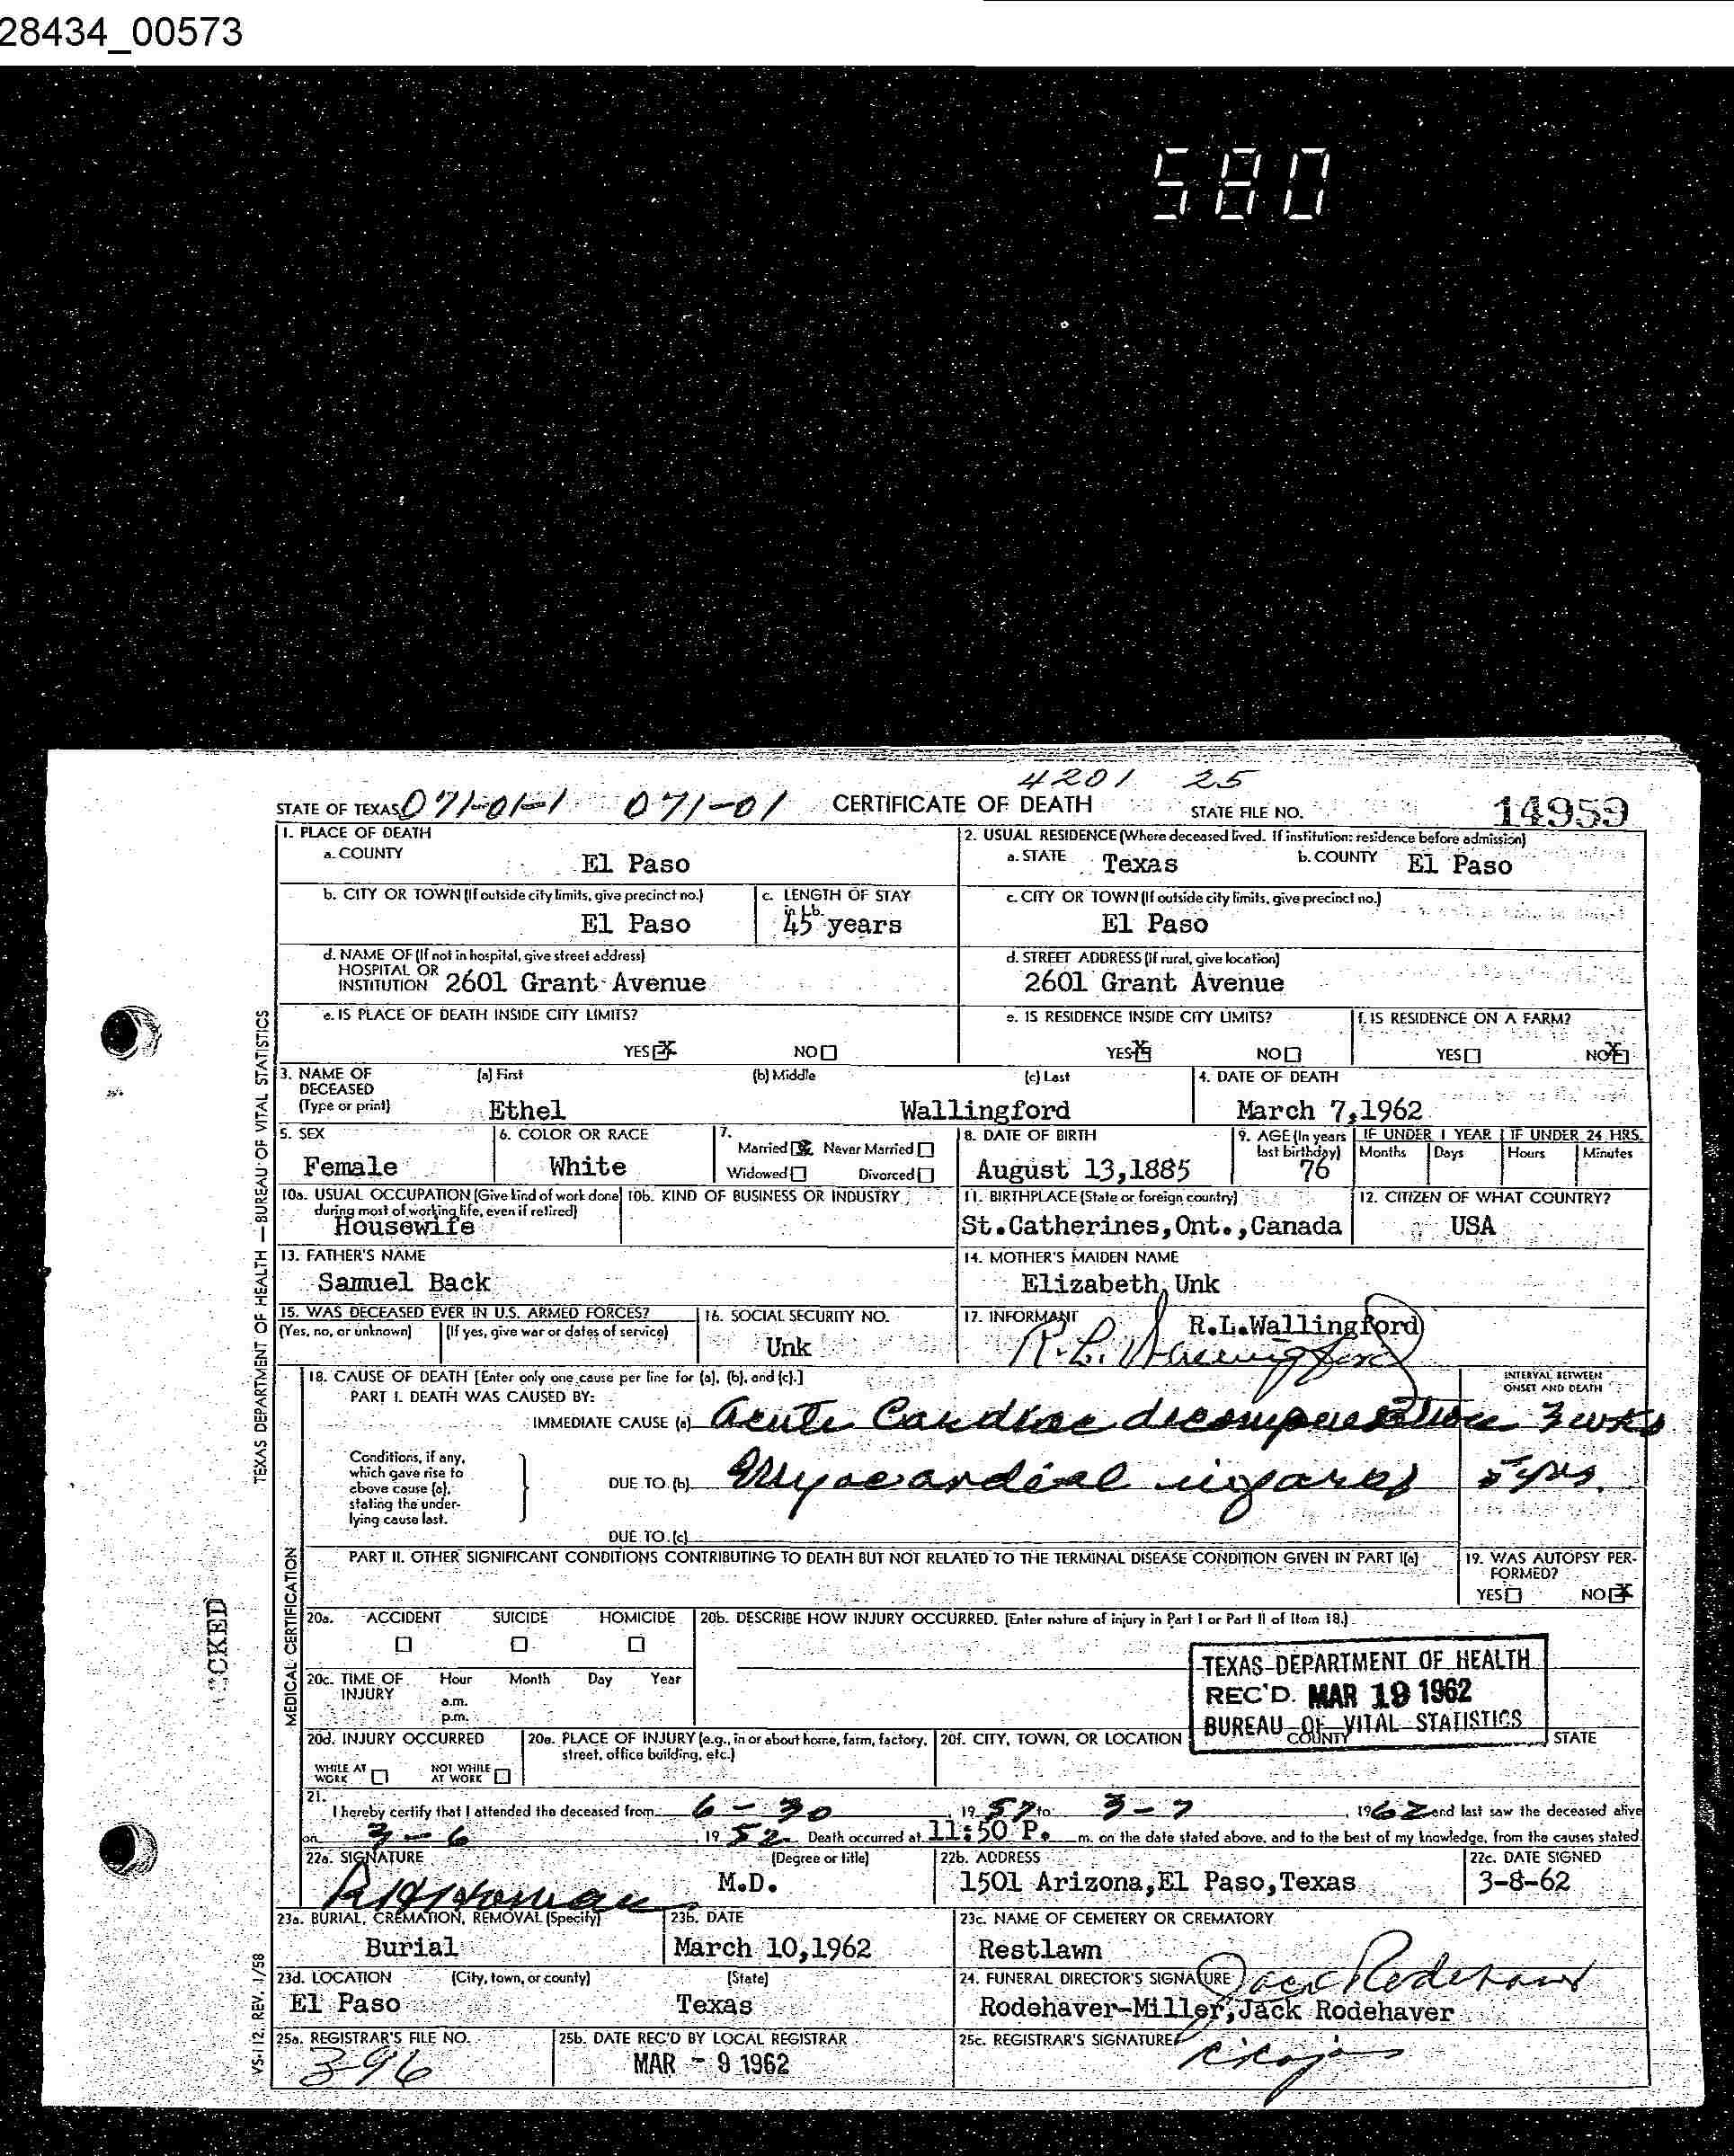 28434_00573
580
4201 25
STATE OF TEXAS 071-01-1 071-01 CERTIFICATE OF DEATH STATE FILE NO. 14959
1. PLACE OF DEATH
a. COUNTY
El Paso
2. USUAL RESIDENCE (Where deceased lived. If institution: residence before admission)
a. STATE Texas b. COUNTY El Paso
b. CITY OR TOWN (If outside city limits, give precinct no.)
El Paso
c. LENGTH OF STAY
in 1b.
45 years
c. CITY OR TOWN (If outside city limits, give precinct no.)
El Paso
d. NAME OF (If not in hospital, give street address)
HOSPITAL OR
INSTITUTION 2601 Grant Avenue
d. STREET ADDRESS (If rural, give location)
2601 Grant Avenue
e. IS PLACE OF DEATH INSIDE CITY LIMITS?
YES X NO
e. IS RESIDENCE INSIDE CITY LIMITS?
YES X NO
f. IS RESIDENCE ON A FARM?
YES NO X
3. NAME OF
DECEASED
(Type or print)
(a) First (b) Middle (c) Last
Ethel Wallingford
4. DATE OF DEATH
March 7,1962
5. SEX
Female
6. COLOR OR RACE
White
7.
Married X Never Married
Widowed Divorced
8. DATE OF BIRTH
August 13,1885
9. AGE (In years
last birthday)
76
IF UNDER 1 YEAR
Months Days
IF UNDER 24 HRS.
Hours Minutes
10a. USUAL OCCUPATION (Give kind of work done
during most of working life, even if retired)
Housewife
10b. KIND OF BUSINESS OR INDUSTRY
11. BIRTHPLACE (State or foreign country)
St.Catherines,Ont.,Canada
12. CITIZEN OF WHAT COUNTRY?
USA
13. FATHER'S NAME
Samuel Back
14. MOTHER'S MAIDEN NAME
Elizabeth, Unk
15. WAS DECEASED EVER IN U.S. ARMED FORCES?
(Yes, no, or unknown) (If yes, give war or dates of service)
16. SOCIAL SECURITY NO.
Unk
17. INFORMANT
R.L.Wallingford
R.L. Wallingford
18. CAUSE OF DEATH [Enter only one cause per line for (a), (b), and (c).]
PART I. DEATH WAS CAUSED BY:
INTERVAL BETWEEN
ONSET AND DEATH
IMMEDIATE CAUSE (a) Acute Cardiac decompensation 3 wks
Conditions, if any,
which gave rise to
above cause (a),
stating the under-
lying cause last.
DUE TO (b) Myocardial 5 yrs.
DUE TO (c)
PART II. OTHER SIGNIFICANT CONDITIONS CONTRIBUTING TO DEATH BUT NOT RELATED TO THE TERMINAL DISEASE CONDITION GIVEN IN PART I(a)
19. WAS AUTOPSY PER-
FORMED?
YES NO X
20a. ACCIDENT SUICIDE HOMICIDE
20b. DESCRIBE HOW INJURY OCCURRED. (Enter nature of injury in Part I or Part II of Item 18.)
20c. TIME OF
INJURY
Hour Month Day Year
a.m.
p.m.
TEXAS DEPARTMENT OF HEALTH
REC'D. MAR 19 1962
BUREAU OF VITAL STATISTICS
20d. INJURY OCCURRED
WHILE AT
WORK
NOT WHILE
AT WORK
20e. PLACE OF INJURY (e.g., in or about home, farm, factory,
street, office building, etc.)
20f. CITY, TOWN, OR LOCATION COUNTY STATE
21.
I hereby certify that I attended the deceased from 6 - 30, 1957 to 3 - 7, 1962 and last saw the deceased alive
on 3 - 6, 1952 Death occurred at 11:50 P. m. on the date stated above, and to the best of my knowledge, from the causes stated.
22a. SIGNATURE
(Degree or title)
M.D.
22b. ADDRESS
1501 Arizona,El Paso,Texas
22c. DATE SIGNED
3-8-62
23a. BURIAL, CREMATION, REMOVAL (Specify)
Burial
23b. DATE
March 10,1962
23c. NAME OF CEMETERY OR CREMATORY
Restlawn
23d. LOCATION (City, town, or county) (State)
El Paso Texas
24. FUNERAL DIRECTOR'S SIGNATURE Jack Rodehaver
Rodehaver-Miller,Jack Rodehaver
25a. REGISTRAR'S FILE NO.
396
25b. DATE REC'D BY LOCAL REGISTRAR
MAR - 9 1962
25c. REGISTRAR'S SIGNATURE
TEXAS DEPARTMENT OF HEALTH — BUREAU OF VITAL STATISTICS
MEDICAL CERTIFICATION
VS-112, REV. 1/58